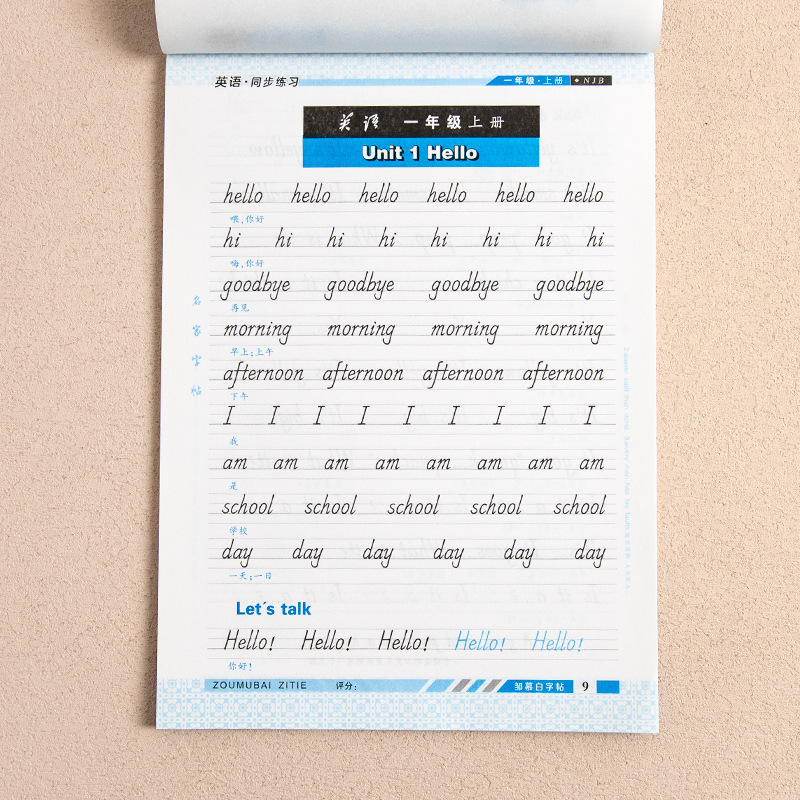 英语·同步练习 一年级·上册 ◆NJB
英语 一年级上册
Unit 1 Hello
hello hello hello hello hello hello
喂,你好
hi hi hi hi hi hi hi hi
嗨,你好
goodbye goodbye goodbye goodbye
再见
morning morning morning morning
早上;上午
afternoon afternoon afternoon afternoon
下午
I I I I I I I I I
我
am am am am am am am am
是
school school school school school
学校
day day day day day day
一天;一日
Let's talk
Hello! Hello! Hello! Hello! Hello!
你好!
名家字帖
ZOUMUBAI ZITIE 评分: 邹慕白字帖 9